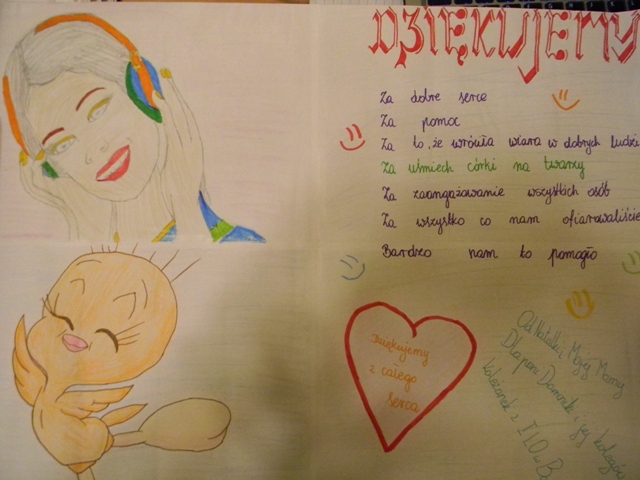 DZIĘKUJEMY
Za dobre serce
Za pomoc
Za to, że wróciła wiara w dobrych ludzi
Za uśmiech córki na twarzy
Za zaangażowanie wszystkich osób
Za wszystko co nam ofiarowaliście
Bardzo nam to pomogło
Dziękujemy
z całego
serca
Od Natalki i Mojej Mamy
Dla pani Danusi i jej kolegów
koleżanek z I LO w B